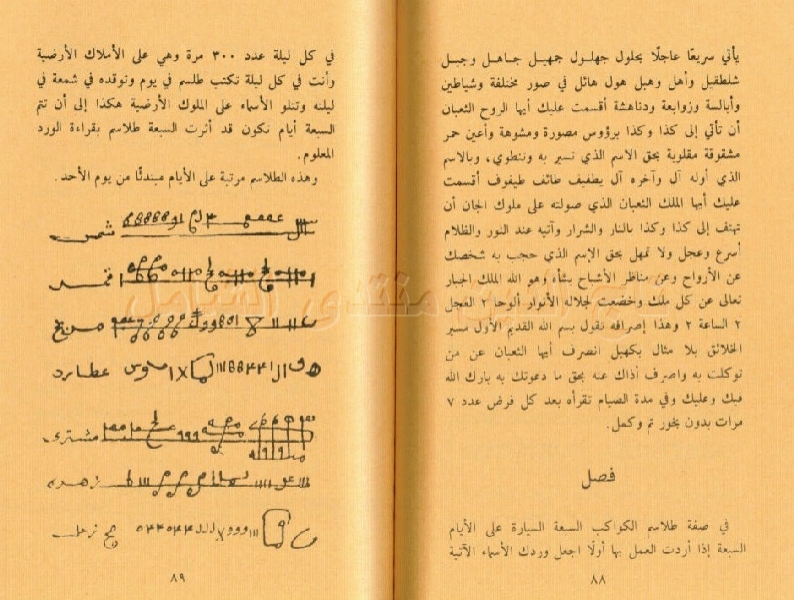 يأتي سريعًا عاجلًا بحلول جهلول جمهيل جاهل وجبل
شلطقيل وأهل وهبل هول هائل في صور مختلفة وشياطين
وأبالسة وزوابعة ودناهشة أقسمت عليك أيها الروح الثعبان
أن تأتي إلى كذا وكذا برؤوس مصورة ومشوهة وأعين حمر
مشقوقة مقلوبة بحق الاسم الذي تسير به وتنطوي، وبالاسم
الذي أوله آل وآخره آل يطفيف طائف طيفوف أقسمت
عليك أيها الملك الثعبان الذي صولته على ملوك الجان أن
تهتف إلى كذا وكذا بالنار والشرار وآتيه عند النور والظلام
أسرع وعجل ولا تمهل بحق الإسم الذي حجب به شخصك
عن الأرواح وعن مناظر الأشباح وهو الله الملك الجبار
تعالى عن كل ملك وخضعت لجلاله الأنوار ألوحا ٢ العجل
٢ الساعة ٢ وهذا إصرافه تقول بسم الله القديم الأول مسير
الخلائق بلا مثال بكهيل انصرف أيها الثعبان عن من
توكلت به واصرف أذاك عنه بحق ما دعوتك به بارك الله
فيك وعليك وفي مدة الصيام تقرأه بعد كل فرض عدد ٧
مرات بدون بخور تم وكمل.
فصل
في صفة طلاسم الكواكب السبعة السيارة على الأيام
السبعة إذا أردت العمل بها أولًا اجعل وردك الأسماء الآتية
٨٨
في كل ليلة عدد ٣٠٠ مرة وهي على الأملاك الأرضية
وأنت في كل ليلة تكتب طلسم في يوم وتوقده في شمعة في
ليلته وتتلو الأسماء على الملوك الأرضية هكذا إلى أن تتم
السبعة أيام تكون قد أثرت السبعة طلاسم بقراءة الورد
المعلوم.
وهذه الطلاسم مرتبة على الأيام مبتدئًا من يوم الأحد.
شمس
قمر
مريخ
عطارد
مشترى
زهره
زحل
٨٩